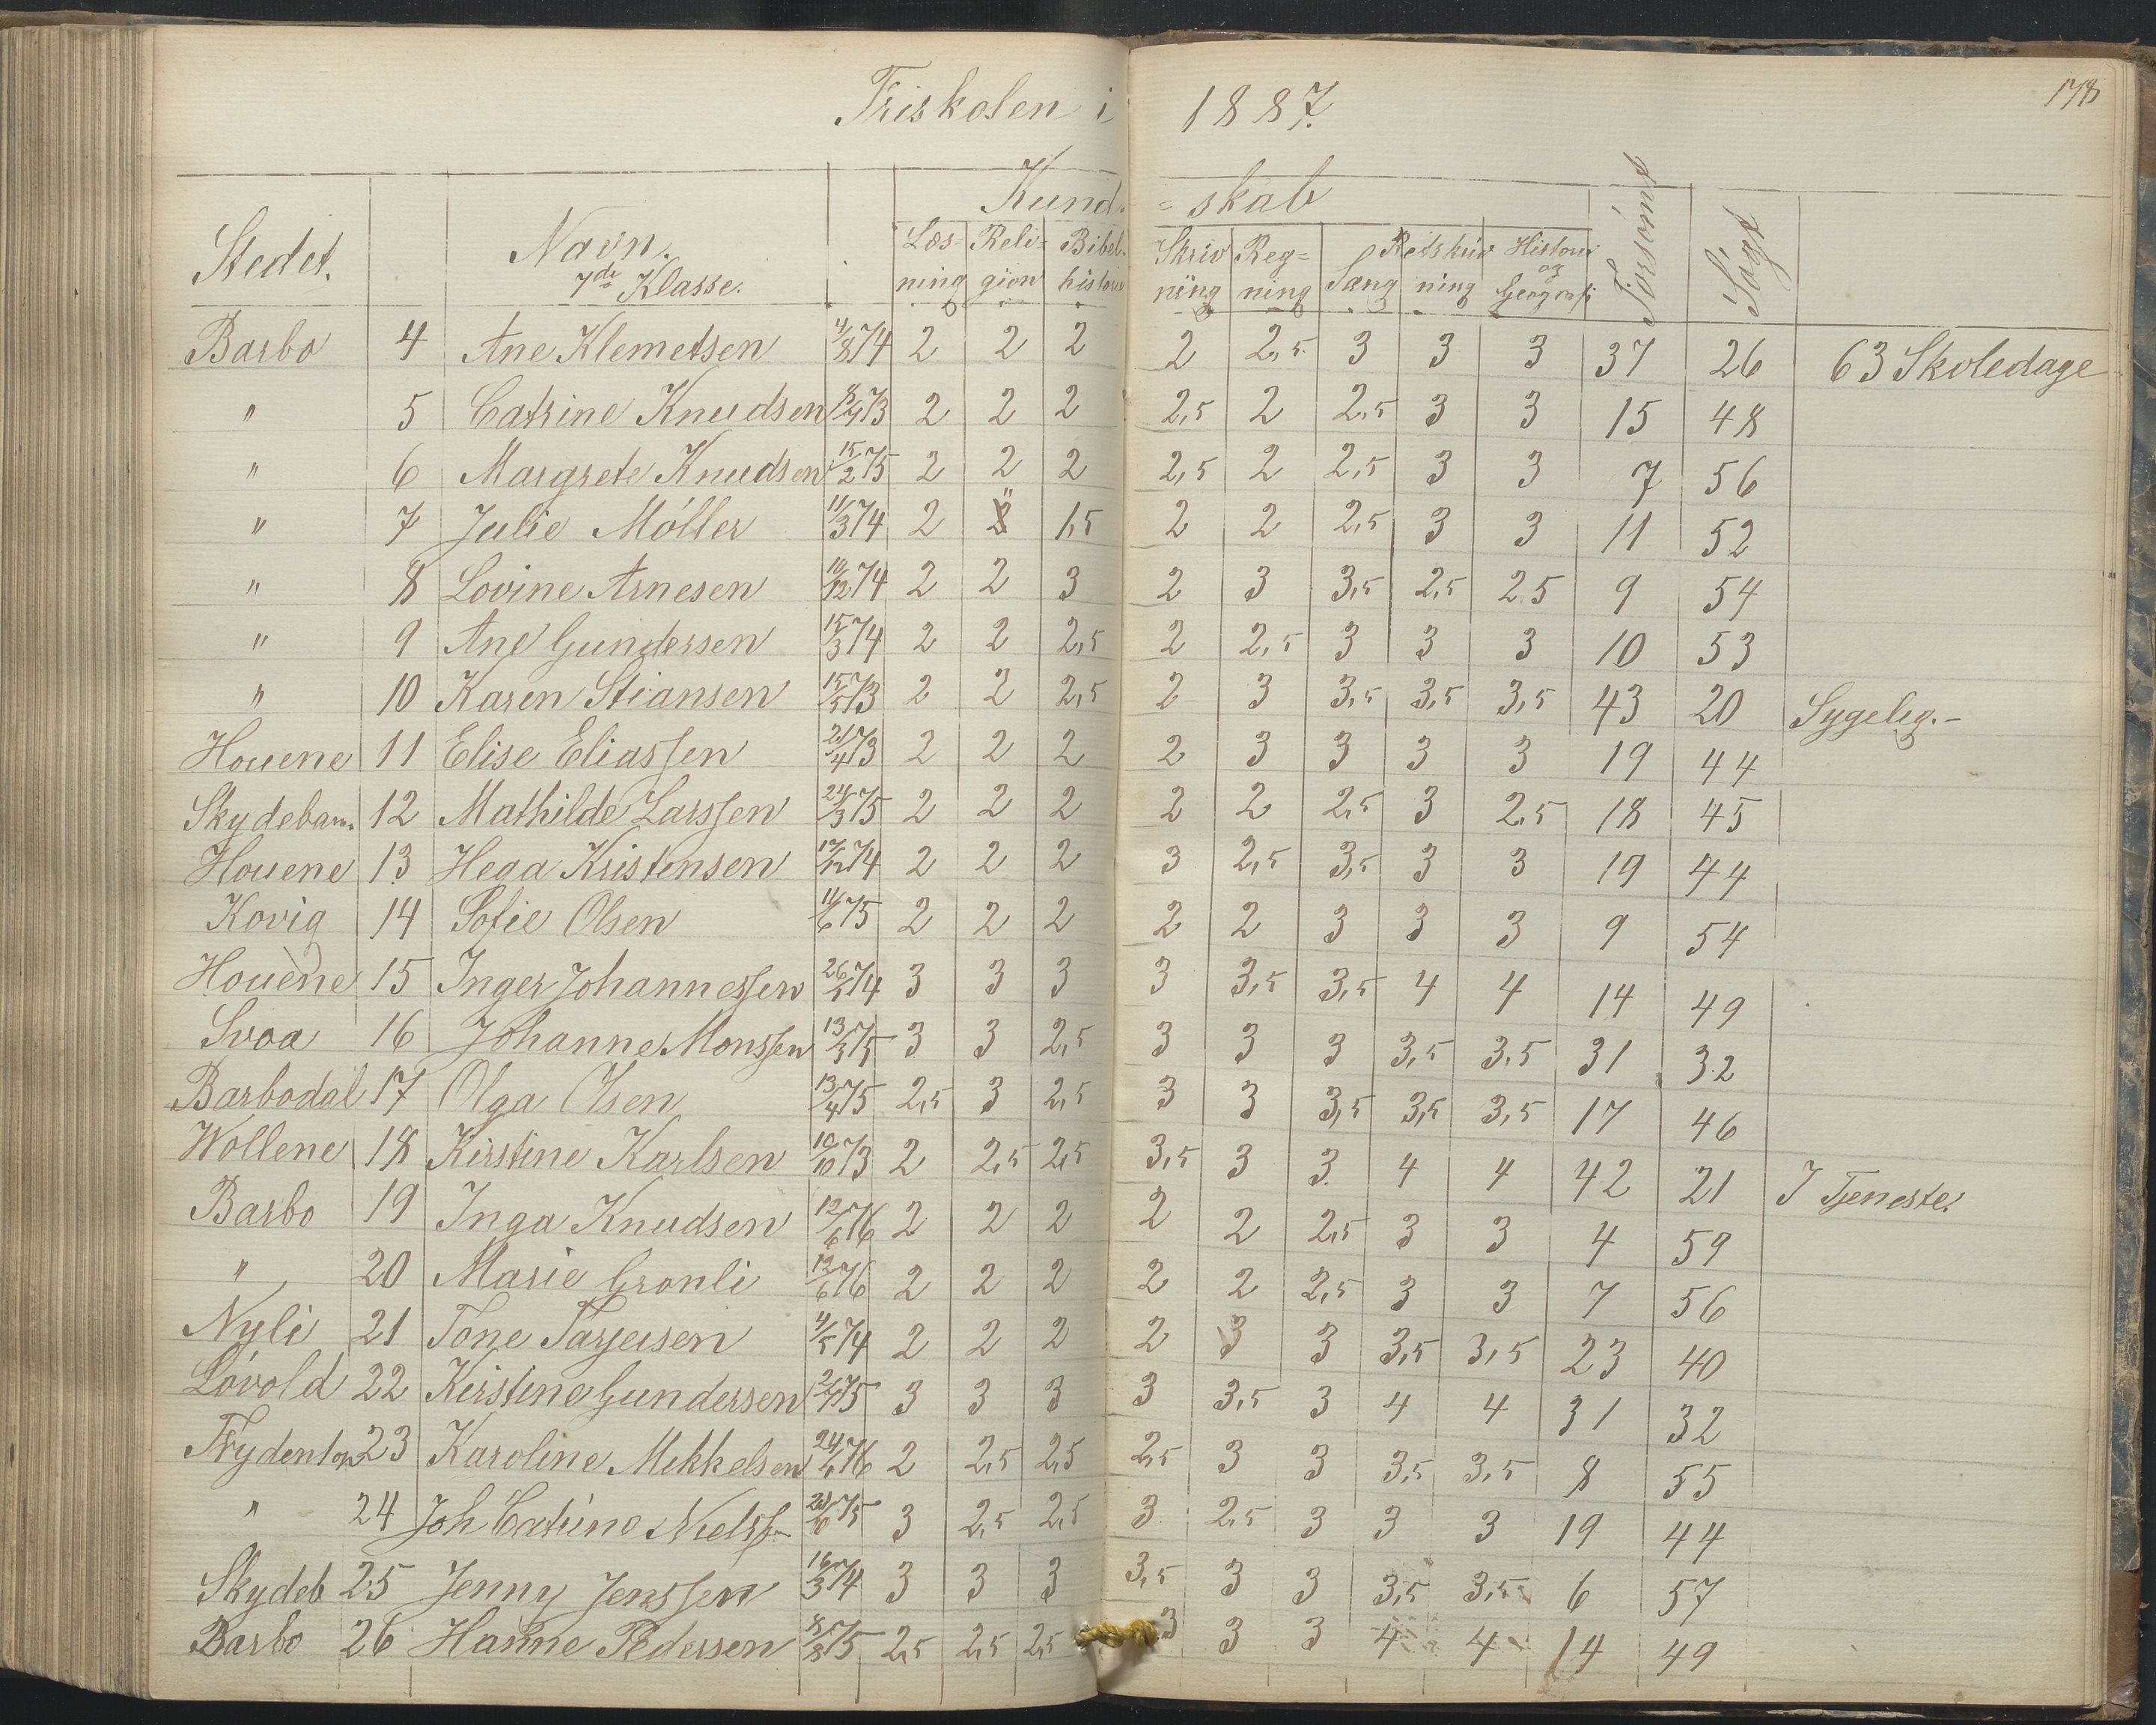 Friskolen i 1887.
178
Kund- = skab
Stedet. Navn. Læs= Reli= Bibel. Skriv Reg= Sang Retskriv Historie Forsömt Sögt
7de Klasse. ning gion historie ning ning ning og Geografi
Barbo 4 Ane Klemetsen 4/8 74 2 2 2 2 2,5 3 3 3 37 26 63 Skoledage
" 5 Catrine Knudsen 73 2 2 2 2,5 2 2,5 3 3 15 48
" 6 Margrete Knudsen 15/2 75 2 2 2 2,5 2 2,5 3 3 7 56
" 7 Julie Möller 11/3 74 2 " 1,5 2 2 2,5 3 3 11 52
" 8 Lovine Arnesen 10/12 74 2 2 3 2 3 3,5 2,5 2.5 9 54
" 9 Ane Gundersen 15/3 74 2 2 2,5 2 2,5 3 3 3 10 53
" 10 Karen Stiansen 15/5 73 2 2 2,5 2 3 3,5 3,5 3,5 43 20 Sygelig.-
Houene 11 Elise Eliassen 21/4 73 2 2 2 2 3 3 3 3 19 44
Skydeban. 12 Mathilde Larssen 24/3 75 2 2 2 2 2 2,5 3 2,5 18 45
Houene 13 Hega Kristensen 17/12 74 2 2 2 3 2,5 3,5 3 3 19 44
Kovig 14 Sofie Olsen 11/6 75 2 2 2 2 2 3 3 3 9 54
Houene 15 Inger Johannessen 26/5 74 3 3 3 3 3,5 3,5 4 4 14 49
Svoa 16 Johanne Monssen 13/3 75 3 3 2,5 3 3 3 3,5 3,5 31 32
Barbodal 17 Olga Olsen 13/4 75 2,5 3 2,5 3 3 3,5 3,5 3,5 17 46
Wollene 18 Kirstine Karlsen 10/10 73 2 2,5 2,5 3,5 3 3. 4 4 42 21 I Tjeneste.
Barbo 19 Inga Knudsen 12/6 76 2 2 2 2 2 2,5 3 3 4 59
" 20 Marie Gronli 13/6 76 2 2 2 2 2 2,5 3 3 7 56
Nyli 21 Tone Tarjeisen 4/5 74 2 2 2 2 3 3 3,5 3,5 23 40
Lóvold 22 Kirstine Gundersen 2/7 75 3 3 3 3 3,5 3 4 4 31 32
23 Karoline Mikkelsen 24/1 76 2 2,5 2,5 2,5 3 3 3,5 3,5 8 55
" 24 Joh Catrine Nielss 75 3 2,5 2,5 3 2,5 3 3 3 19 44
Skydeb 25 Jenny Jenssen 16/3 74 3 3 3 3,5 3 3 3,5 3,5 6 57
Barbo 26 Hanne Pedersen 8/8 75 2,5 2,5 2,5 3 3 3 4 4 14 49